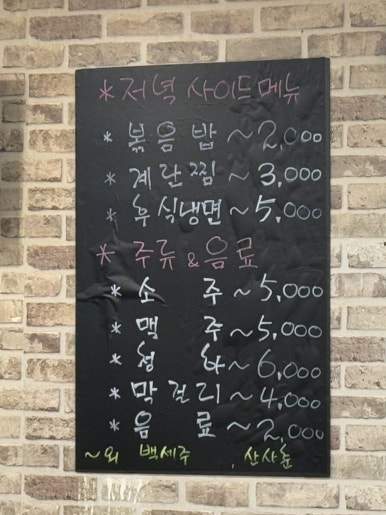 * 저녁 사이드메뉴
* 볶음밥 ~ 2,000
* 계란찜 ~ 3,000
* 후식냉면 ~ 5,000
* 주류 & 음료
* 소 주 ~ 5,000
* 맥 주 ~ 5,000
* 청 하 ~ 6,000
* 막걸리 ~ 4,000
* 음 료 ~ 2,000
~외 백세주 , 산사춘